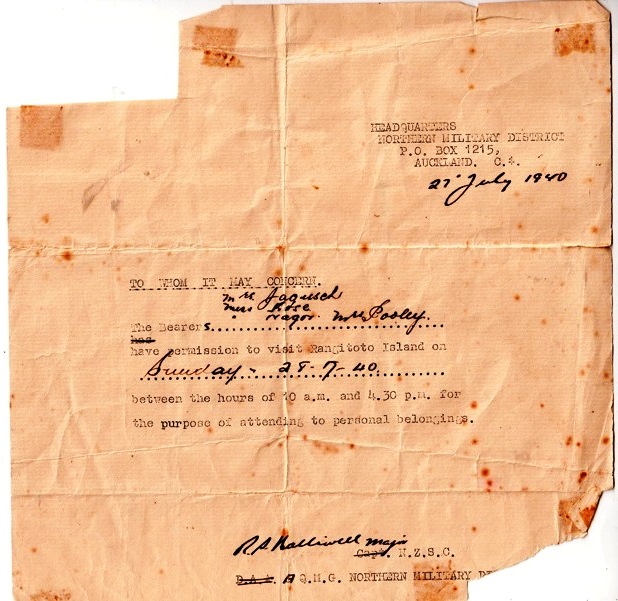 HEADQUARTERS
NORTHERN MILITARY DISTRICT
P.O. BOX 1215,
AUCKLAND. C.4.
27 July 1940
TO WHOM IT MAY CONCERN.
Mrs Jagusch
Miss Rose
" Mrs Pooley.
The Bearers
has
have permission to visit Rangitoto Island on
Sunday - 28-7-40.
between the hours of 10 a.m. and 4.30 p.m. for
the purpose of attending to personal belongings.
Major
Capt. N.Z.S.C.
D.A.A. A Q.M.G. NORTHERN MILITARY